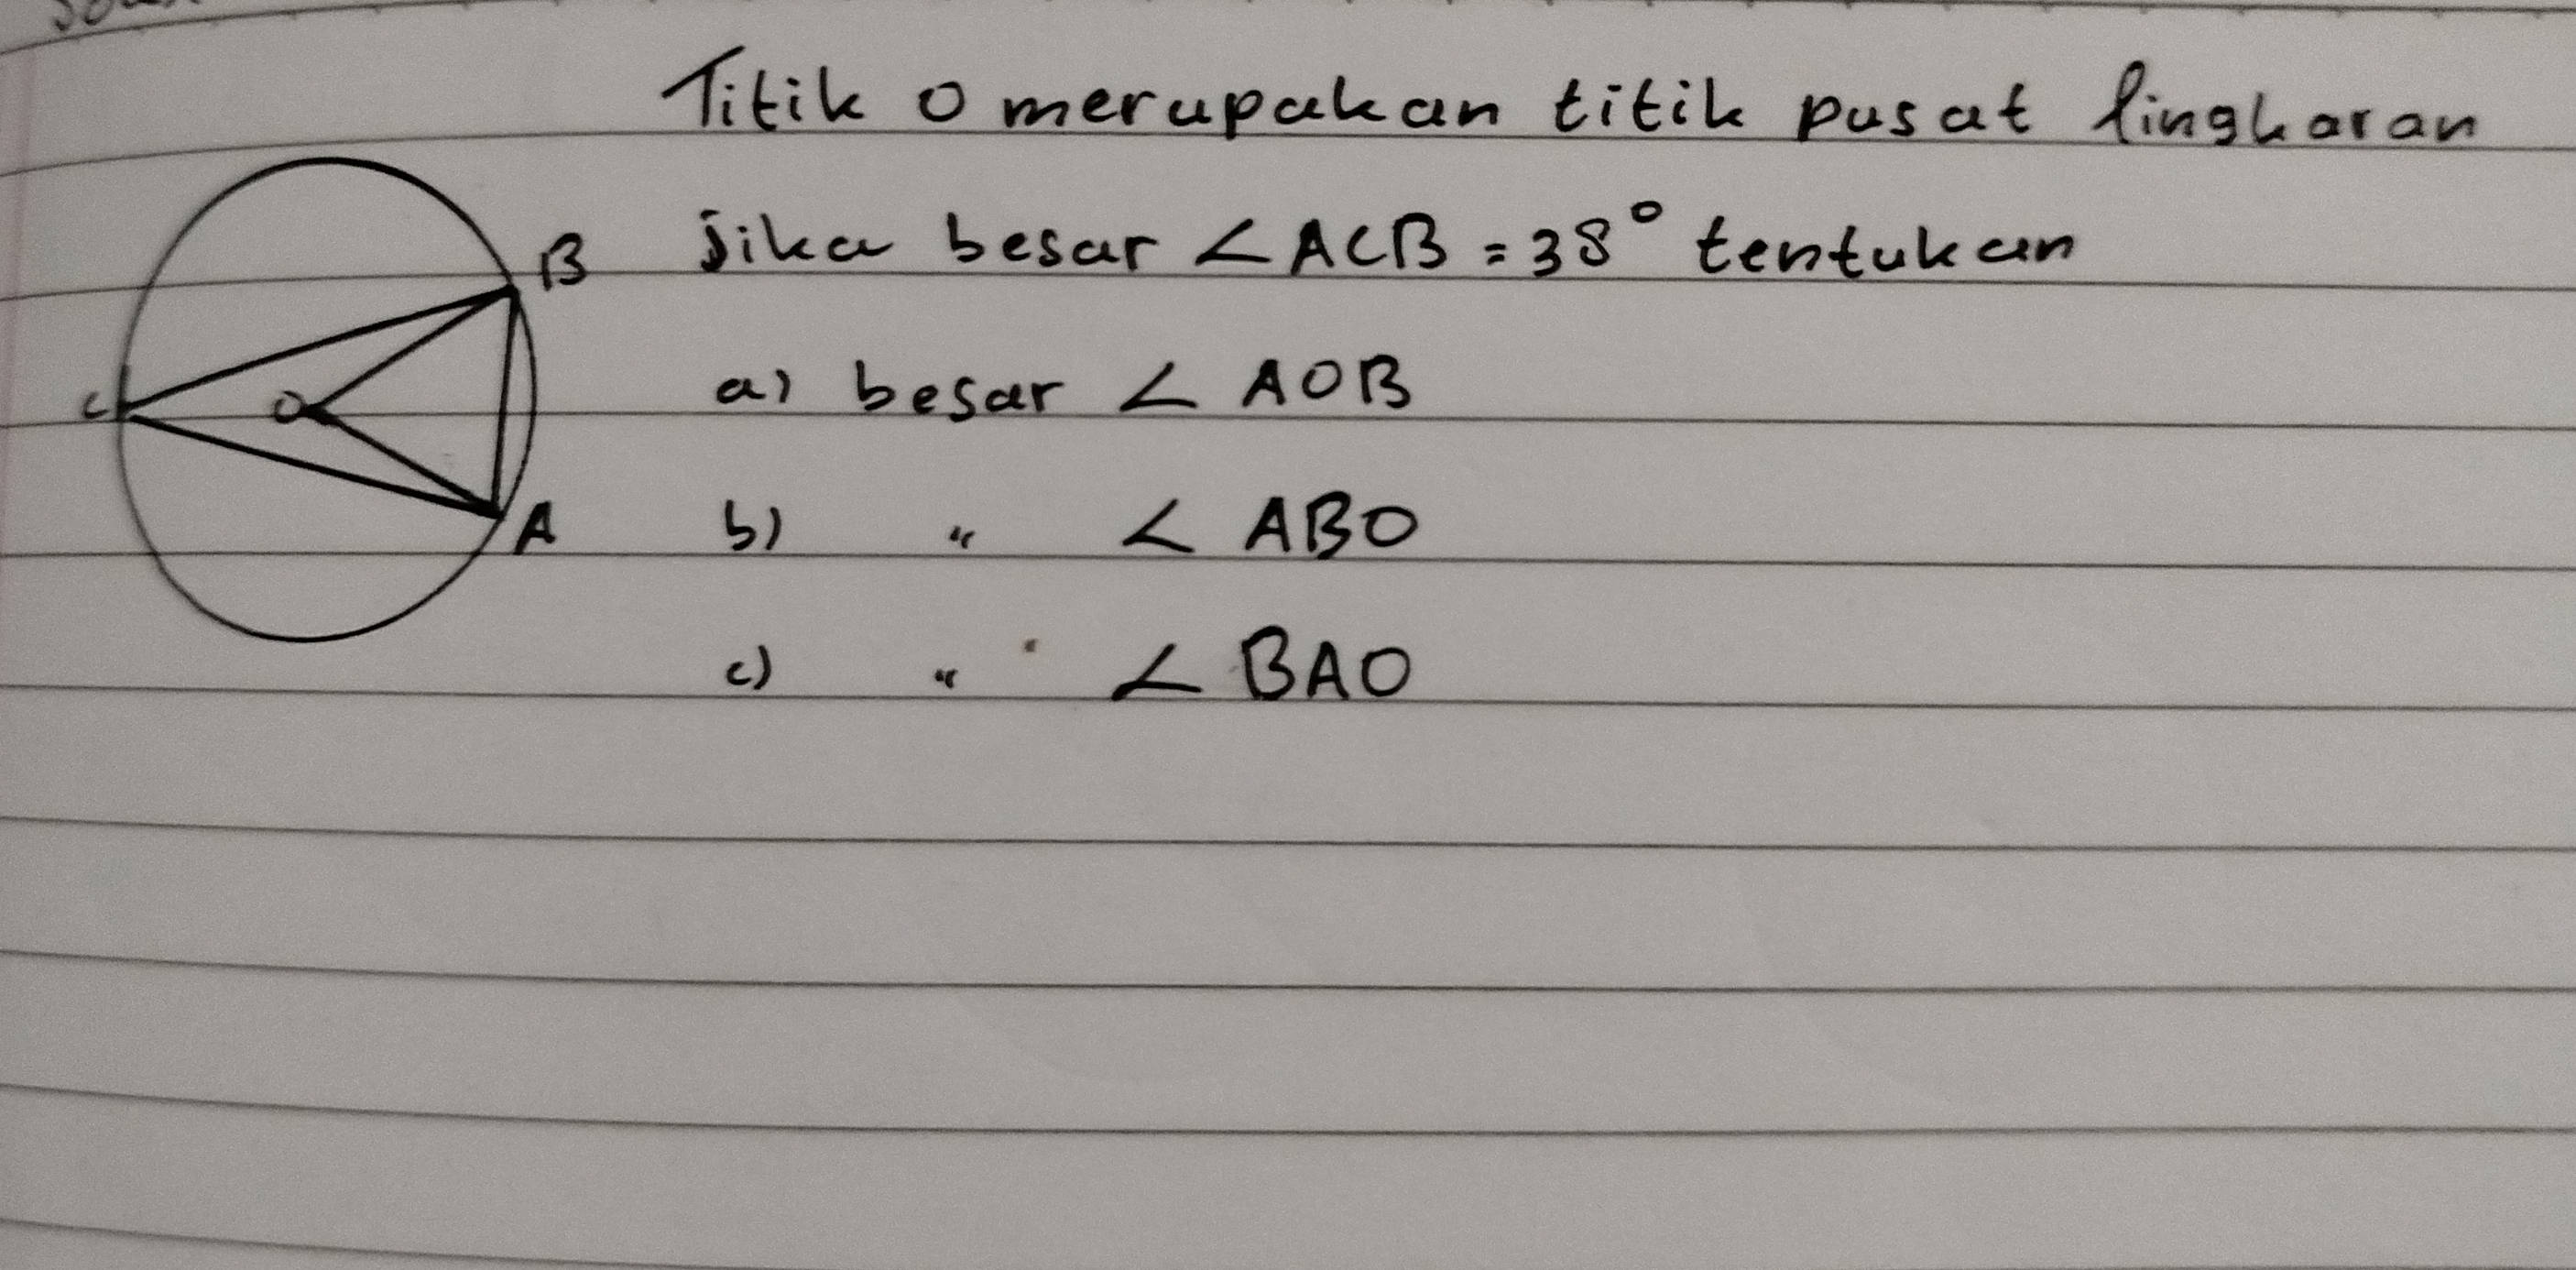 Titik O merupakan titik pusat lingkaran
B jika besar ∠ACB = 38° tentukan
C O a) besar ∠ AOB
A b) " ∠ ABO
c) " ∠ BAO